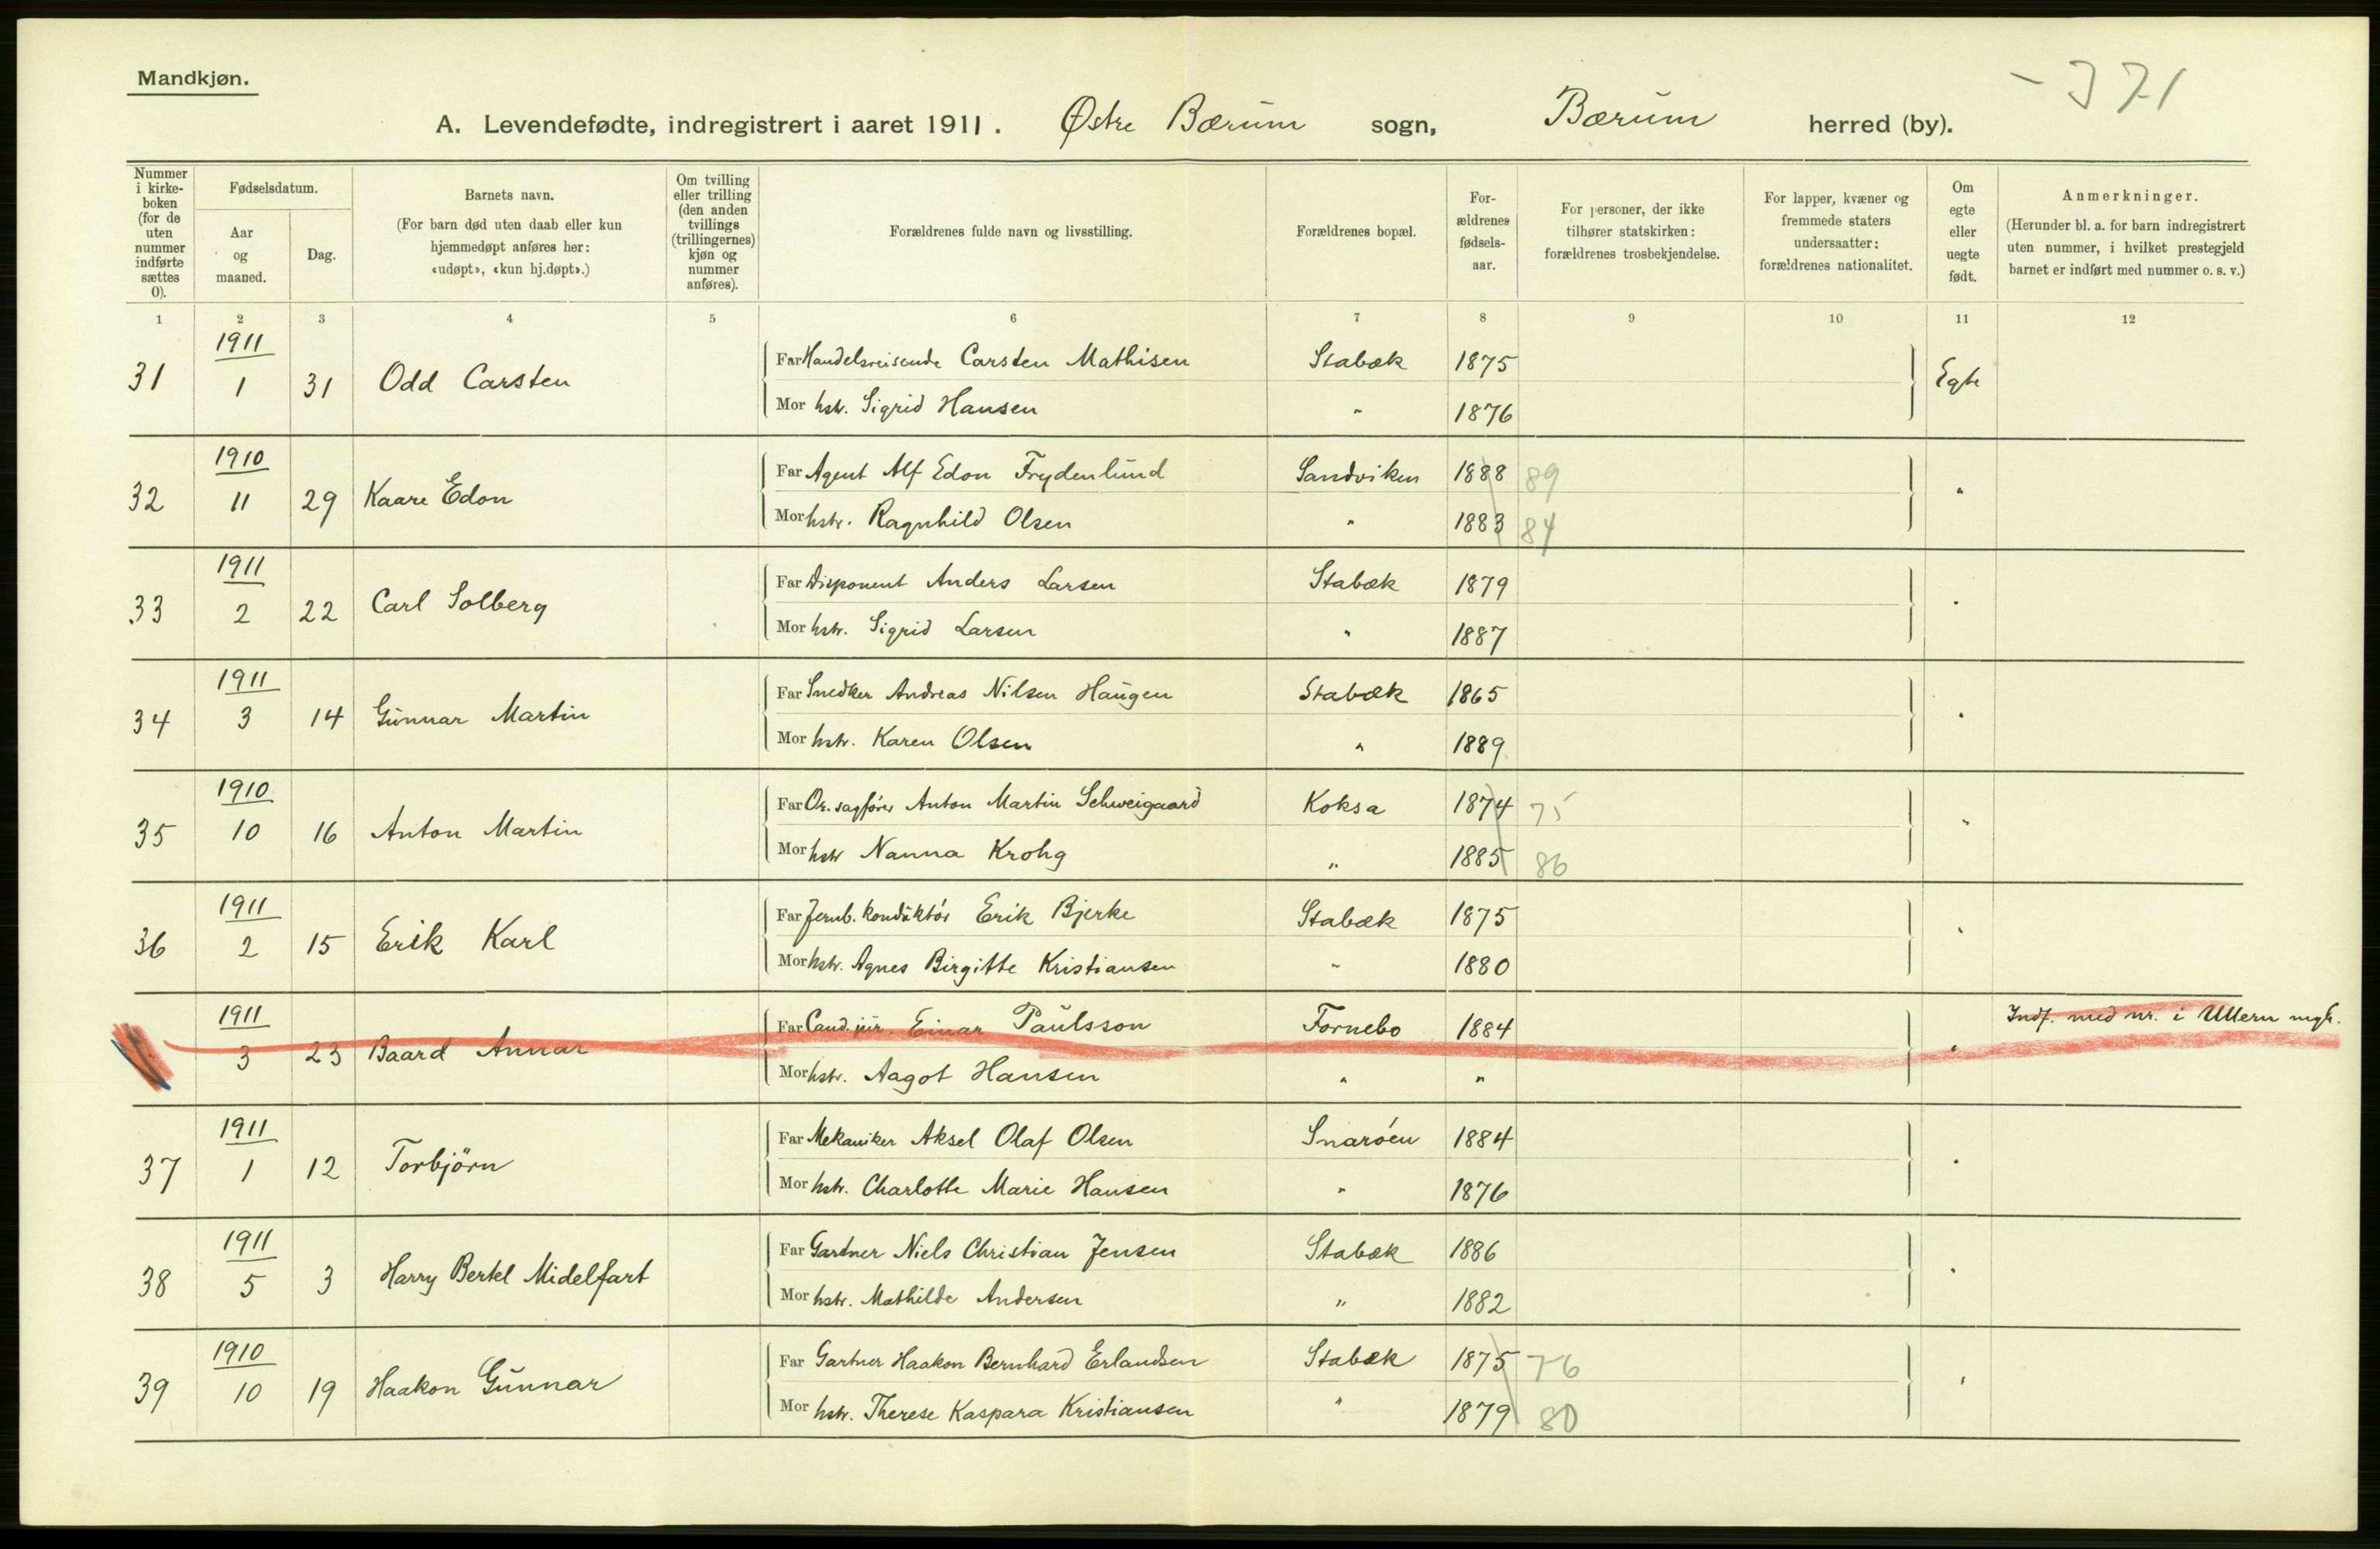 Mandkjøn.
- 371
A. Levendefødte, indregistrert i aaret 1911. Østre Bærum sogn, Bærum herred (by).
Nummer i kirke-boken (for de uten nummer indførte sættes 0).
Fødselsdatum.
Aar og maaned.
Dag.
Barnets navn.
(For barn død uten daab eller kun hjemmedøpt anføres her: «udøpt», «kun hj.døpt».)
Om tvilling eller trilling (den anden tvillings (trillingernes) kjøn og nummer anføres).
Forældrenes fulde navn og livsstilling.
Forældrenes bopæl.
For-ældrenes fødsels-aar.
For personer, der ikke tilhører statskirken: forældrenes trosbekjendelse.
For lapper, kvæner og fremmede staters undersaatter: forældrenes nationalitet.
Om egte eller uegte født.
Anmerkninger.
(Herunder bl. a. for barn indregistrert uten nummer, i hvilket prestegjeld barnet er indført med nummer o. s. v.)
1 2 3 4 5 6 7 8 9 10 11 12
1911
31 1 31 Odd Carsten Far Handelsreisende Carsten Mathisen Stabæk 1875 Egte
Mor hstr. Sigrid Hansen " 1876
1910
32 11 29 Kaare Edon Far Agent Alf Edon Frydenlund Sandviken 1888 89 "
Mor hstr. Ragnhild Olsen " 1883 84
1911
33 2 22 Carl Solberg Far Disponent Anders Larsen Stabæk 1879 "
Mor hstr. Sigrid Larsen " 1887
1911
34 3 14 Gunnar Martin Far Snedker Andreas Nilsen Haugen Stabæk 1865 "
Mor hstr. Karen Olsen " 1889
1910
35 10 16 Anton Martin Far Or. sagfører Anton Martin Schweigaard Koksa 1874 75 "
Mor hstr Nanna Krohg " 1885 86
1911
36 2 15 Erik Karl Far Jernb. konduktör Erik Bjerke Stabæk 1875 "
Mor hstr. Agnes Birgitte Kristiansen " 1880
1911
3 23 Baard Annar Far Cand. jur. Einar Paulsson Fornebo 1884 " Indf. med nr. i Ullern mgh.
Mor hstr. Aagot Hansen " "
1911
37 1 12 Torbjörn Far Mekaniker Aksel Olaf Olsen Snaröen 1884 "
Mor hstr. Charlotte Marie Hansen " 1876
1911
38 5 3 Harry Bertel Midelfart Far Gartner Niels Christian Jensen Stabæk 1886 "
Mor hstr. Mathilde Andersen " 1882
1910
39 10 19 Haakon Gunnar Far Gartner Haakon Bernhard Erlandsen Stabæk 1875 76 "
Mor hstr. Therese Kaspara Kristiansen " 1879 80